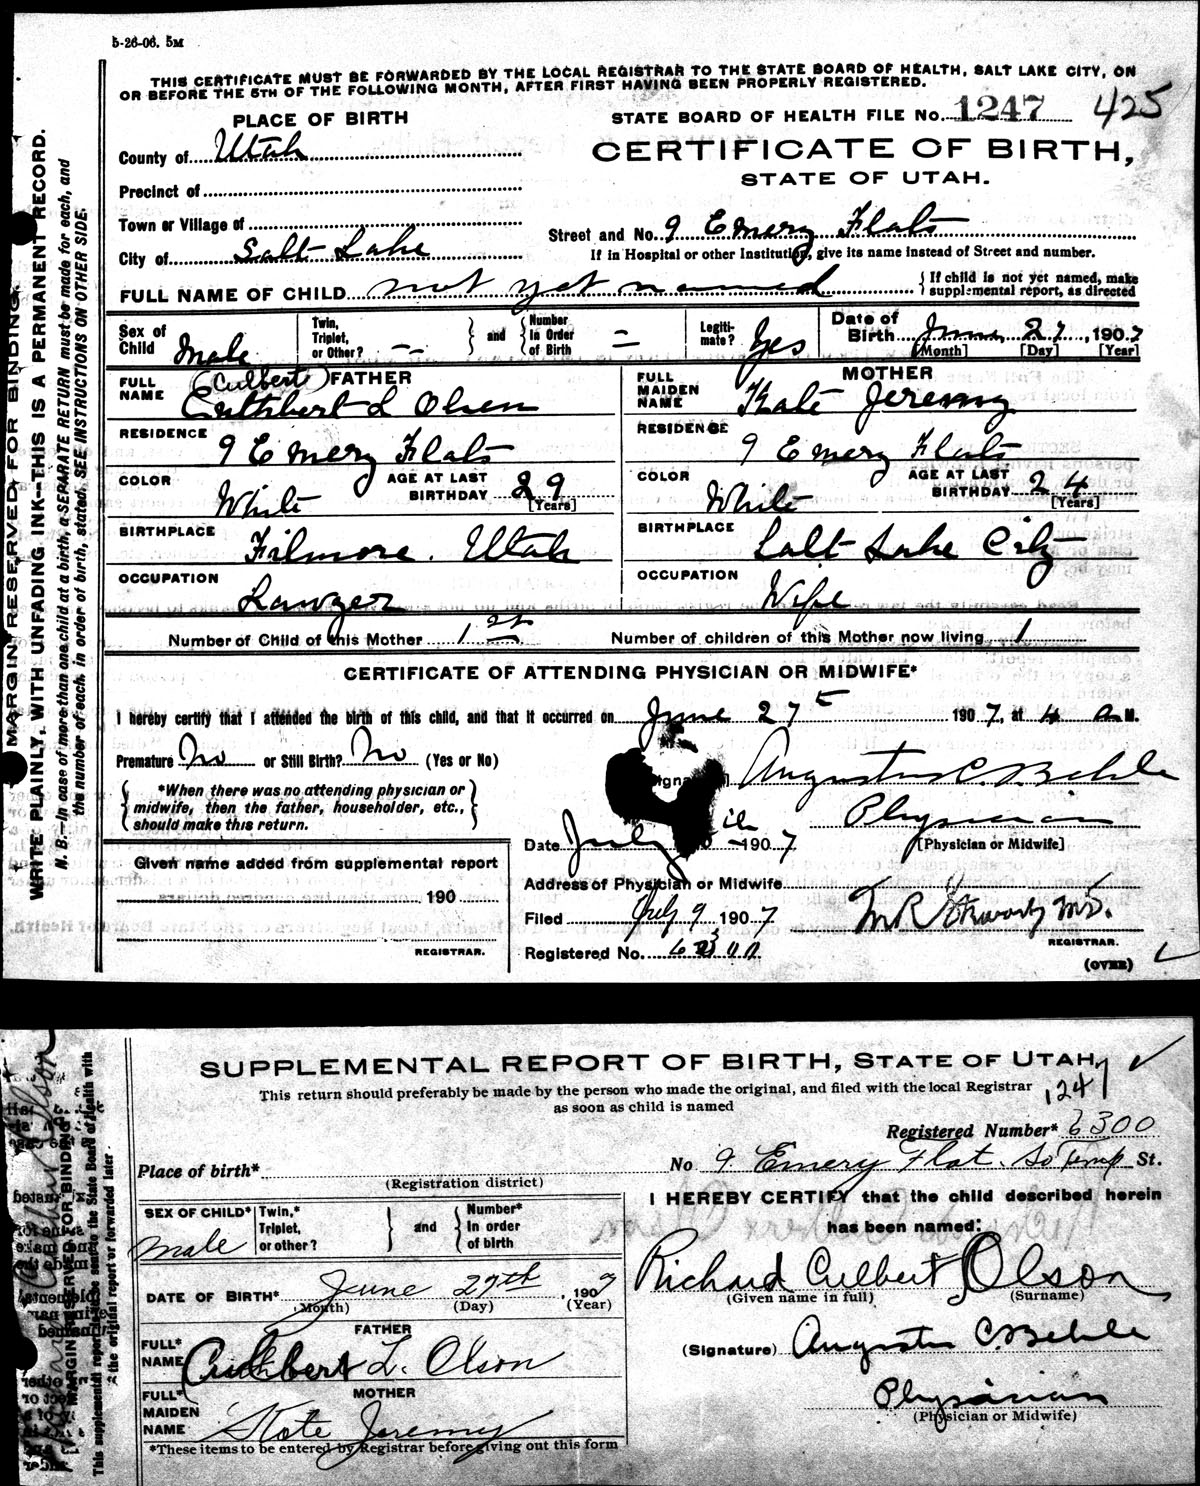 5-26-06. 5M
THIS CERTIFICATE MUST BE FORWARDED BY THE LOCAL REGISTRAR TO THE STATE BOARD OF HEALTH, SALT LAKE CITY, ON
OR BEFORE THE 5TH OF THE FOLLOWING MONTH, AFTER FIRST HAVING BEEN PROPERLY REGISTERED.
MARGIN RESERVED FOR BINDING.
WRITE PLAINLY, WITH UNFADING INK—THIS IS A PERMANENT RECORD.
N. B.—In case of more than one child at a birth, a SEPARATE RETURN must be made for each, and
the number of each, in order of birth, stated. SEE INSTRUCTIONS ON OTHER SIDE.
PLACE OF BIRTH
STATE BOARD OF HEALTH FILE No. 1247 425
County of Utah
CERTIFICATE OF BIRTH,
STATE OF UTAH.
Precinct of
Town or Village of
Street and No. 9 Emery Flats
City of Salt Lake
If in Hospital or other Institution, give its name instead of Street and number.
FULL NAME OF CHILD not yet named
{If child is not yet named, make
supplemental report, as directed
Sex of Child Male
Twin, Triplet, or Other? --
and
Number in Order of Birth =
Legitimate? Yes
Date of Birth June 27, 1907
[Month] [Day] [Year]
FULL NAME FATHER
(Culbert)
Cuthbert L Olsen
FULL MAIDEN NAME MOTHER
Kate Jeremy
RESIDENCE 9 Emery Flats
RESIDENCE 9 Emery Flats
COLOR White
AGE AT LAST BIRTHDAY 29 [Years]
COLOR White
AGE AT LAST BIRTHDAY 24 [Years]
BIRTHPLACE Filmore. Utah
BIRTHPLACE Salt Lake City
OCCUPATION Lawyer
OCCUPATION Wife
Number of Child of this Mother 1st
Number of children of this Mother now living 1
CERTIFICATE OF ATTENDING PHYSICIAN OR MIDWIFE*
I hereby certify that I attended the birth of this child, and that it occurred on June 27 1907, at 4 a M.
Premature No or Still Birth? No (Yes or No)
Augustus C. Behle
*When there was no attending physician or
midwife, then the father, householder, etc.,
should make this return.
Physician
[Physician or Midwife]
Date July 1907
Given name added from supplemental report
190
REGISTRAR.
Address of Physician or Midwife
Filed July 9 1907
M.D.
REGISTRAR.
Registered No.
(OVER)
SUPPLEMENTAL REPORT OF BIRTH, STATE OF UTAH,
This return should preferably be made by the person who made the original, and filed with the local Registrar
as soon as child is named
1247
MARGIN RESERVED FOR BINDING
This supplemental report to be sent to the State Board of Health with
the original report or forwarded later
Registered Number* 6300
Place of birth*
(Registration district)
No 9 Emery Flat. So Temp St.
SEX OF CHILD* male
Twin,* Triplet, or other?
and
Number* In order of birth
I HEREBY CERTIFY that the child described herein
has been named:
Richard Culbert Olson
(Given name in full) (Surname)
DATE OF BIRTH* June 27th, 1907
(Month) (Day) (Year)
FATHER
FULL* NAME Cuthbert L. Olson
(Signature) Augustus C. Behle
MOTHER
FULL* MAIDEN NAME Kate Jeremy
Physician
(Physician or Midwife)
*These items to be entered by Registrar before giving out this form